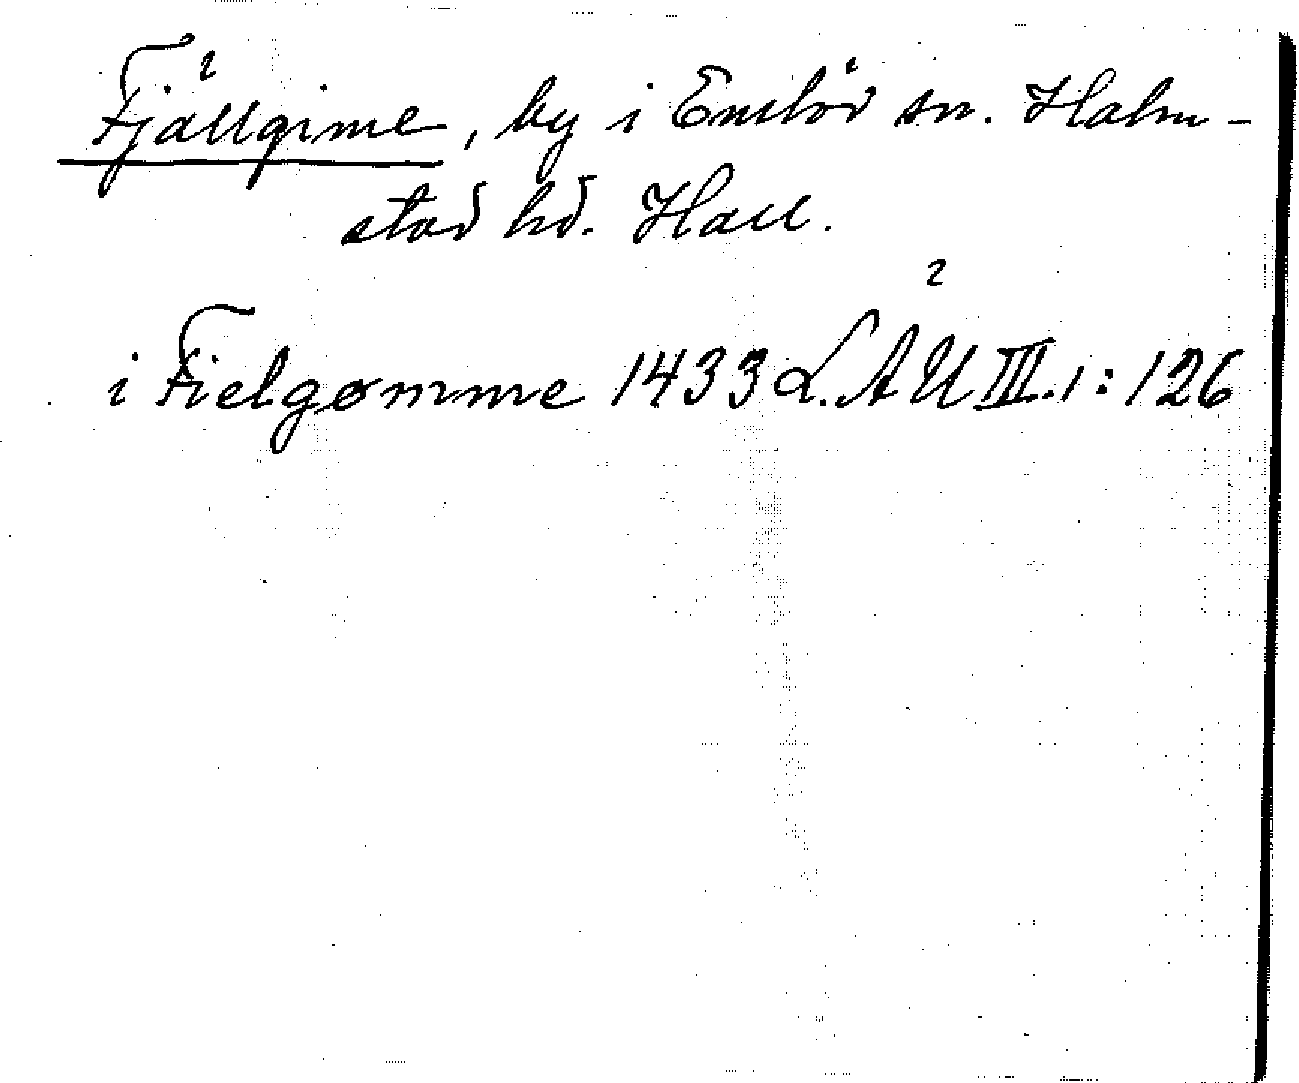 Fjällgime, by i Enslöv sn. Halm-
stad hd. Hall.
i Fielgømme 1433 L.Å U III.1:126